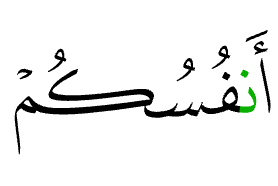 أَنفُسُكُمْ